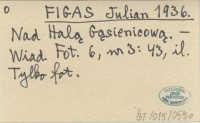 0
FIGAS Julian 1936.
Nad Halą Gąsienicową. —
Wiad. Fot. 6, nr 3: 43, il.
Tylko fot.
bT/015/0590